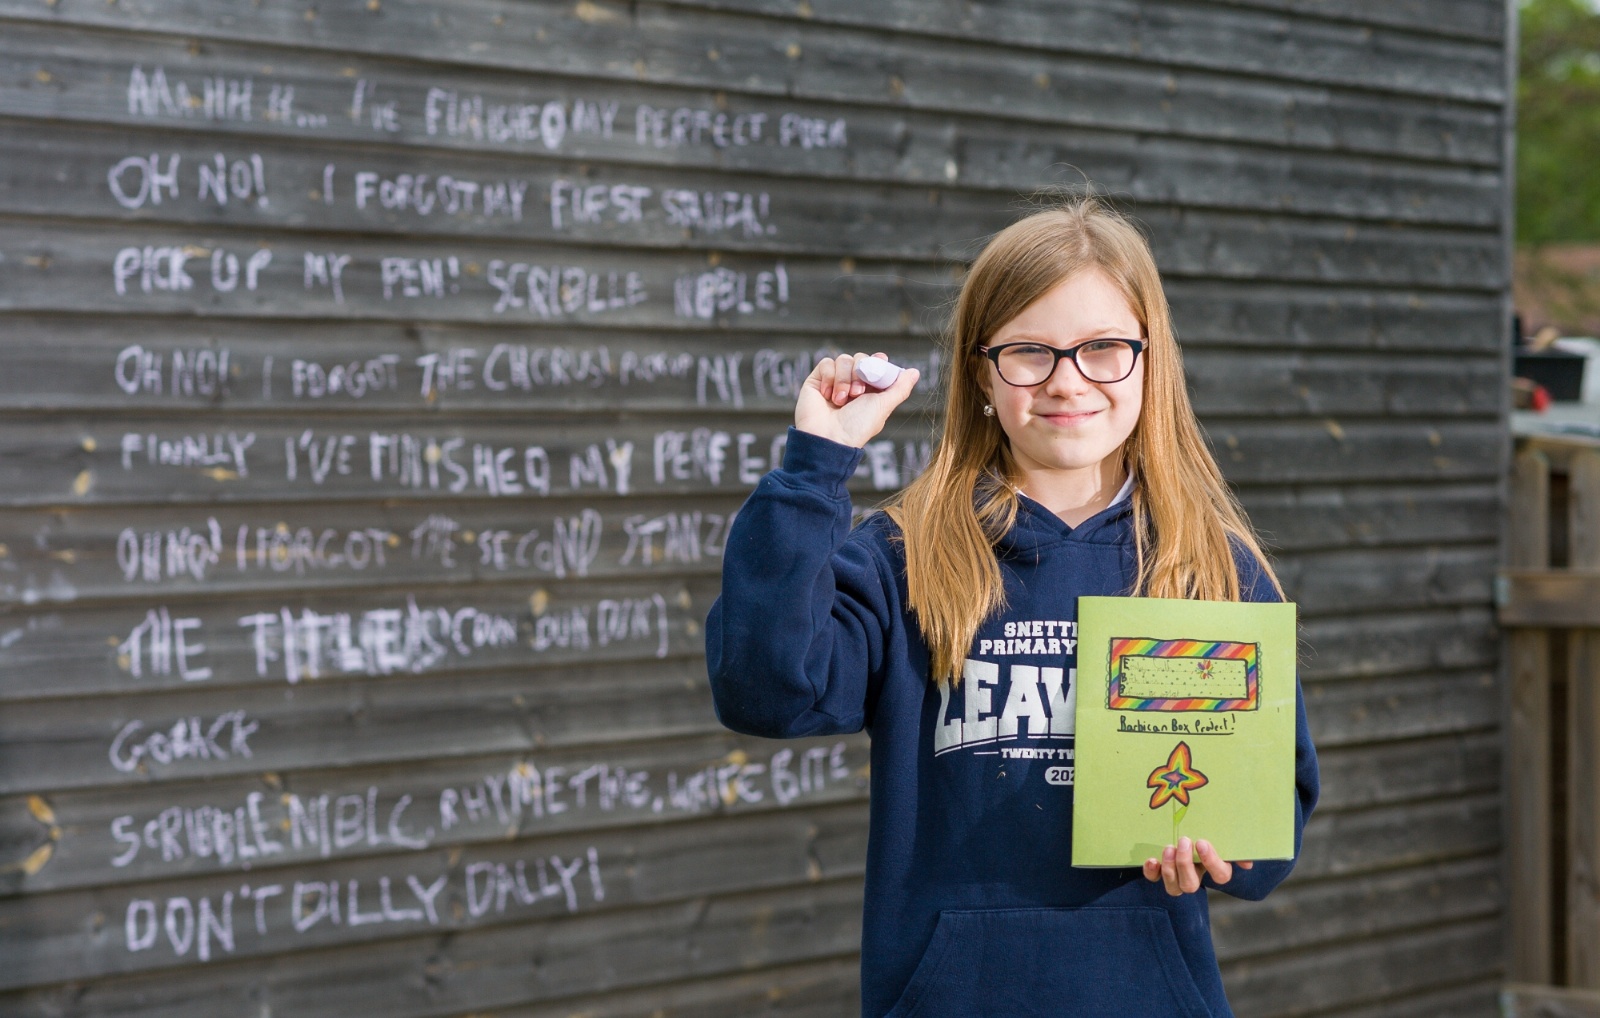 AAAHHH H... I've FINISHED MY PERFECT POEM
OH NO! I FORGOT MY FIRST STANZA!
PICK UP MY PEN! SCRIBLLE NIBBLE!
OH NO! I FORGOT THE CHORUS! PICK UP MY PEN
FINALLY I'VE FINISHED MY PERFEC
OH NO! I FORGOT THE SECOND STANZ
THE TITLE IS
GO BACK
SCRIBBLE NIBLE, RHYME TIME, WRITE BITE
DON'T DILLY DALLY!
SNETTI
PRIMARY
LEAV
TWENTY TW
202
E
B
P
Barbican Box Project!